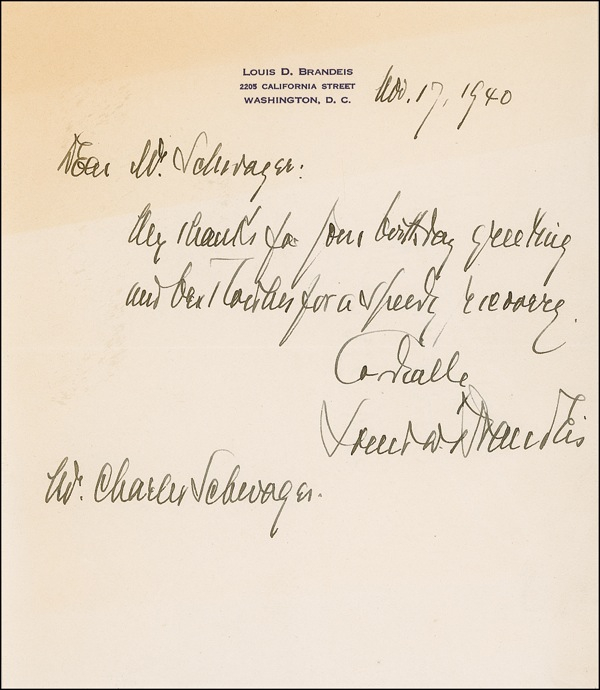 LOUIS D. BRANDEIS
2205 CALIFORNIA STREET
WASHINGTON, D. C.
Nov. 17, 1940
Dear Mr. Schwager:
My thanks for your birthday greeting
and best wishes for a speedy recovery.
Cordially
Louis D. Brandeis
Mr. Charles Schwager.